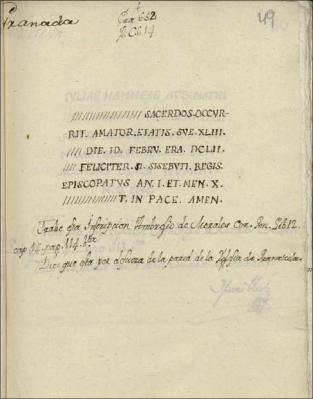 Granada
49
SACERDOS. OCCVR-
RIT. AMATOR. ETATIS. SVE. XLIII.
DIE. IO. FEBRV. ERA. DCLII.
FELICITER. SISEBVTI. REGIS.
EPISCOPATVS AN. I. ET. MEN. X.
T. IN PACE. AMEN.
Trahe esta Inscripcion Ambrosio de Morales Cor. Gen. Lib 12
cap.
Dice que esta por afuera de la pared de la Yglesia de